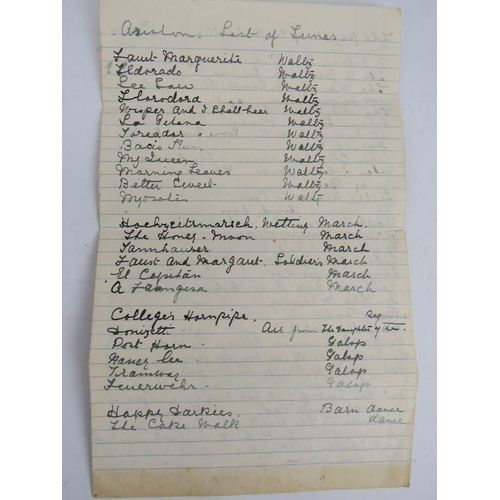 Ariston. List of Tunes.
Faust Marguerite Waltz
Eldorado Waltz
See Saw Waltz
Florodora Waltz
Wisper And I Shall hear Waltz
La Gitana Waltz
Toreador Waltz
Bacio Waltz
My Queen Waltz
Morning Leaves Waltz
Bitter Sweet Waltz
Myosotis Waltz
Hochzeitmarsch, Wetting March.
The Honey-Moon March
Tannhauser March
Faust And Margaret. Soldiers March
El Capitan March
A Frangesa March
College's Hornpipe.
Donizett Air from The Daughter of the
Post Horn - Galop
Nancy Lee - Galop
Tramway - Galop
Feuerwehr - Galop
Happy Darkies. Barn dance
The Cake Walk dance